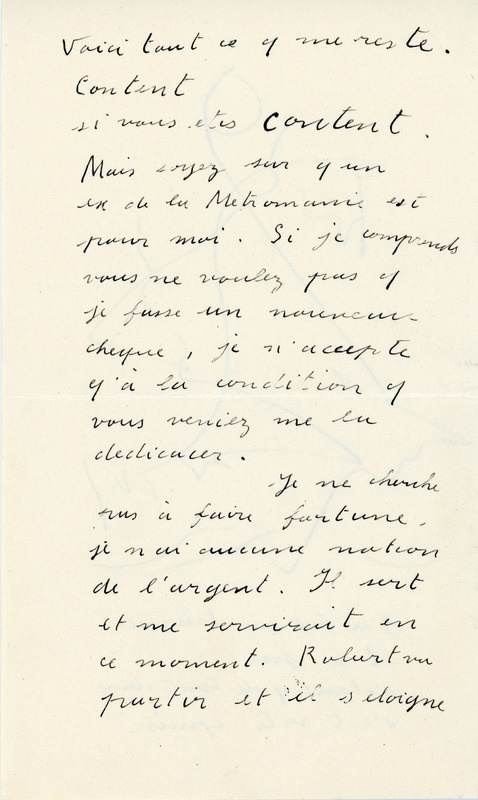 Voici tout ce q me reste.
Content
si vous etes content.
Mais soyez sur q un
ex de la Metromanie est
pour moi. Si je comprends
vous ne voulez pas q
je fasse un nouveau
cheque, je n'accepte
q'à la condition q
vous veniez me la
dedicacer.
Je ne cherche
pas à faire fortune,
je n ai aucune notion
de l'argent. Il sert
et me servirait en
ce moment. Robert va
partir et il s eloigne